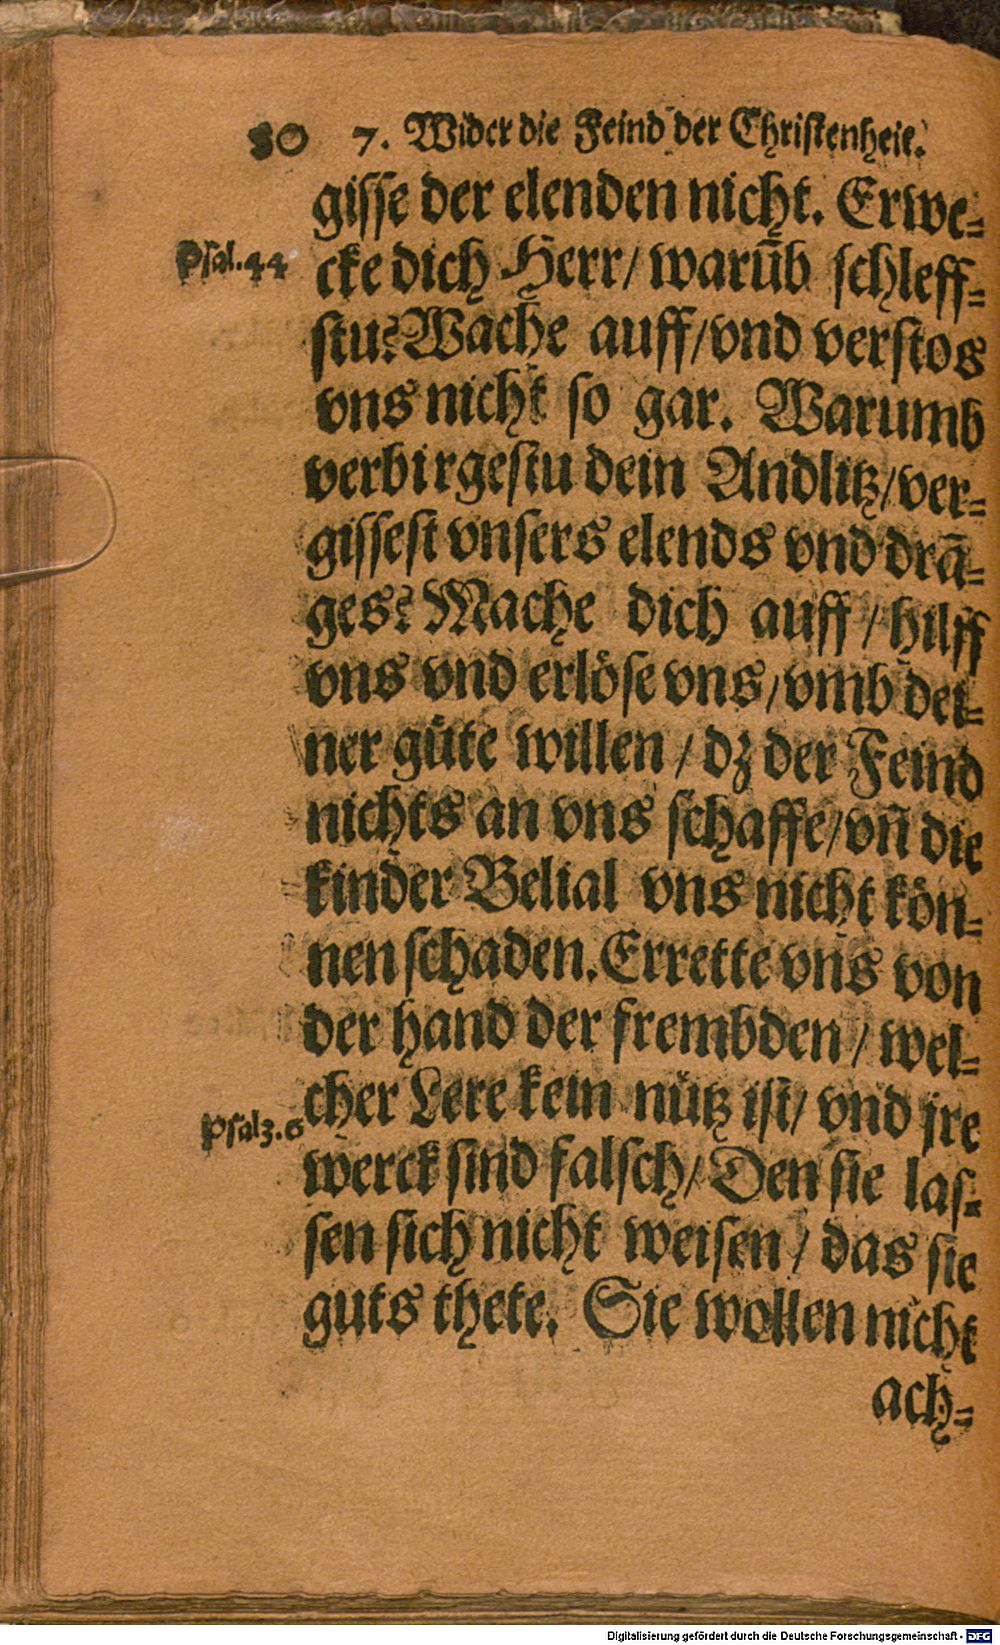 80 7. Wider die Feind der Christenheit.
gisse der elenden nicht. Erwe-
Psal.44
cke dich Herr/ warūb schleff-
stu? Wache auff/ vnd verstos
vns nicht so gar. Warumb
verbirgestu dein Andlitz/ ver-
gissest vnsers elends vnd drā-
ges? Mache dich auff / hilff
vns vnd erlöse vns/ vmb dei-
ner güte willen / dz der Feind
nichts an vns schaffe/ vn̄ die
kinder Belial vns nicht kön-
nen schaden. Errette vns von
der hand der frembden / wel-
cher Lere kein nütz ist/ vnd jre
Psal3.6
werck sind falsch/ Den sie las-
sen sich nicht weisen / das sie
guts thete. Sie wollen nicht
ach-
Digitalisierung gefördert durch die Deutsche Forschungsgemeinschaft - DFG